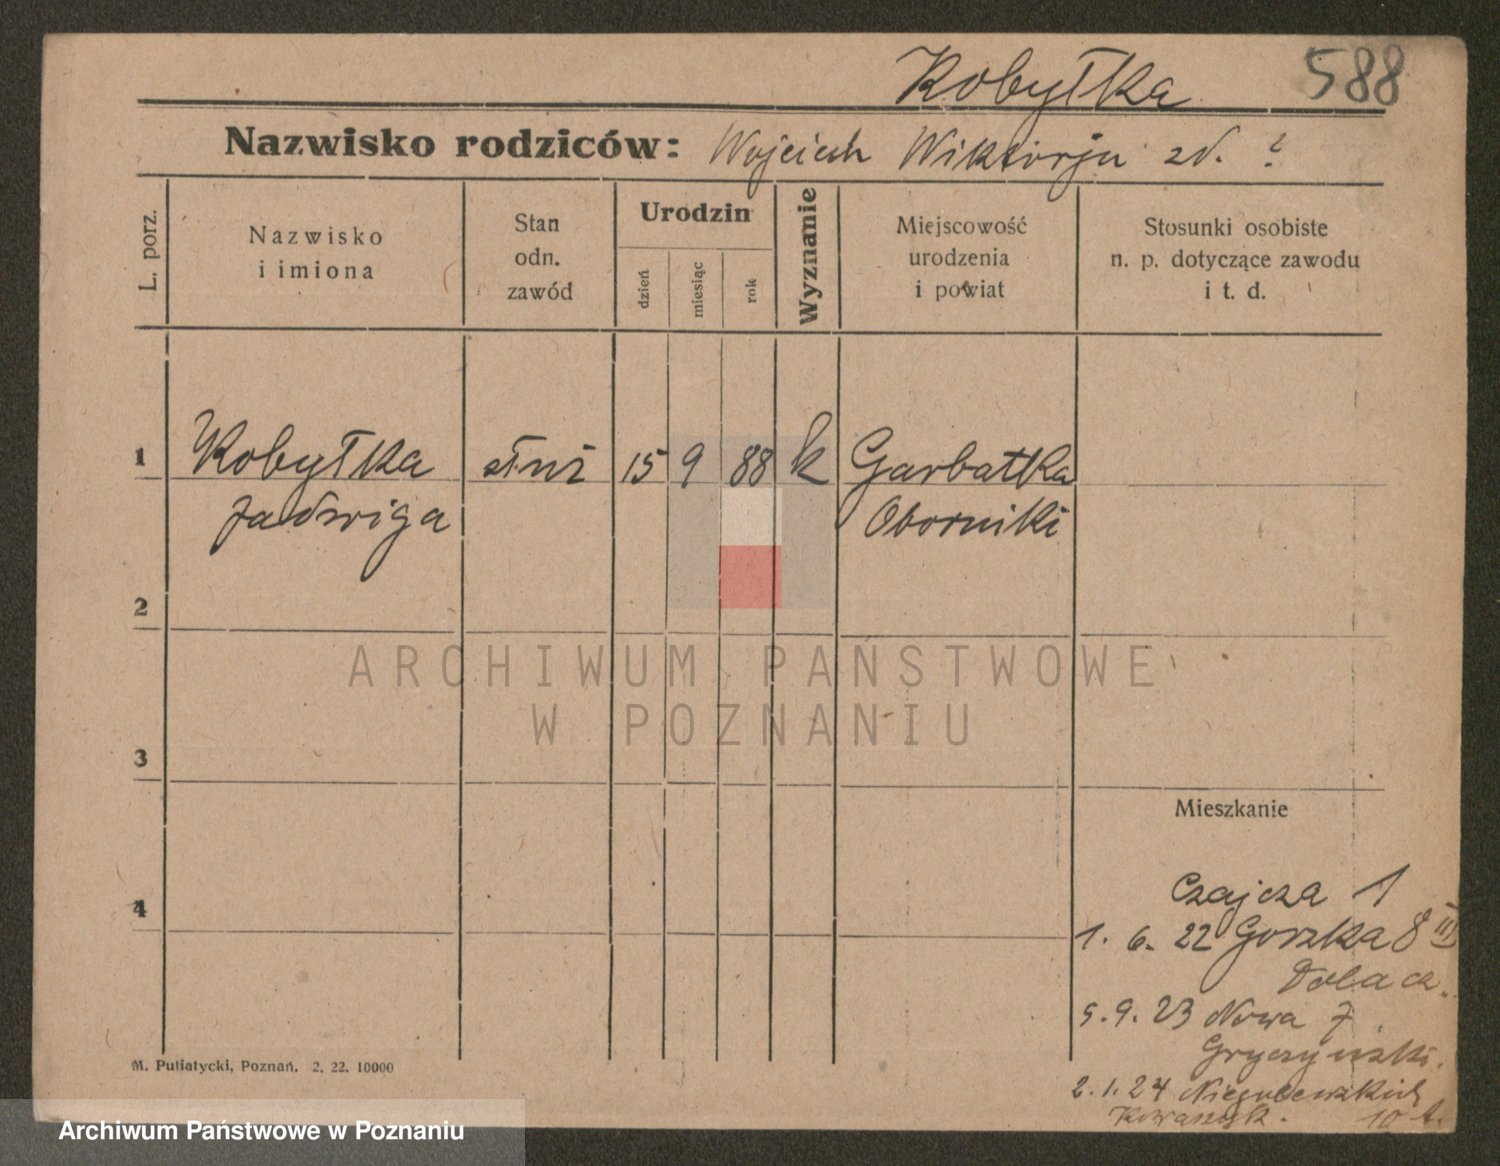 Kobyłka 588
Nazwisko rodziców: Wojciech Wiktorja zd. ?
L. porz.
Nazwisko
i imiona
Stan
odn.
zawód
Urodzin
dzień
miesiąc
rok
Wyznanie
Miejscowość
urodzenia
i powiat
Stosunki osobiste
n. p. dotyczące zawodu
i t. d.
1 Kobyłka służ 15 9 88 k Garbatka
Jadwiga Oborniki
2
ARCHIWUM PAŃSTWOWE
W POZNANIU
3
Mieszkanie
4
Czajcza 1
1. 6. 22 Gorzka 8 III
5.9.23 Nowa 7
Gryczyński.
2.1.24 Niegolewskich
10
M. Putiatycki, Poznań. 2, 22. 10000
Archiwum Państwowe w Poznaniu